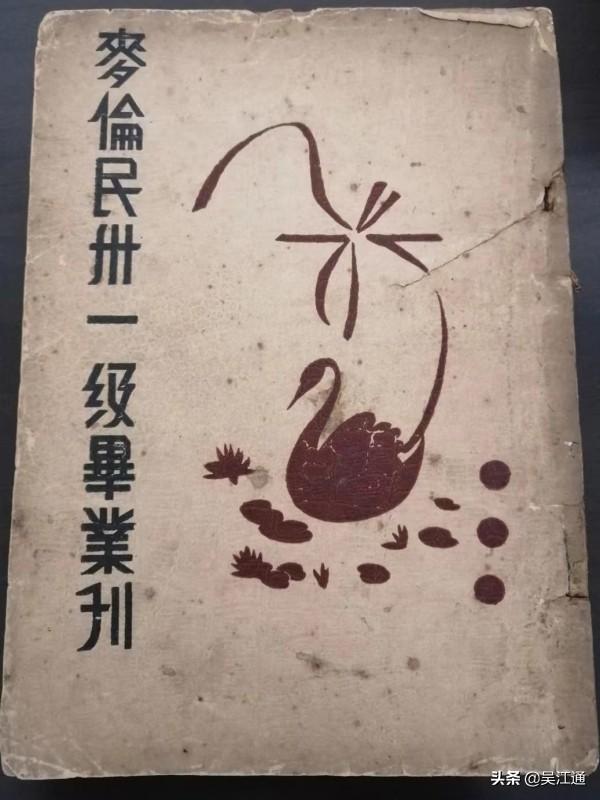 麥倫民卅一級畢業刊
头条 @吴江通